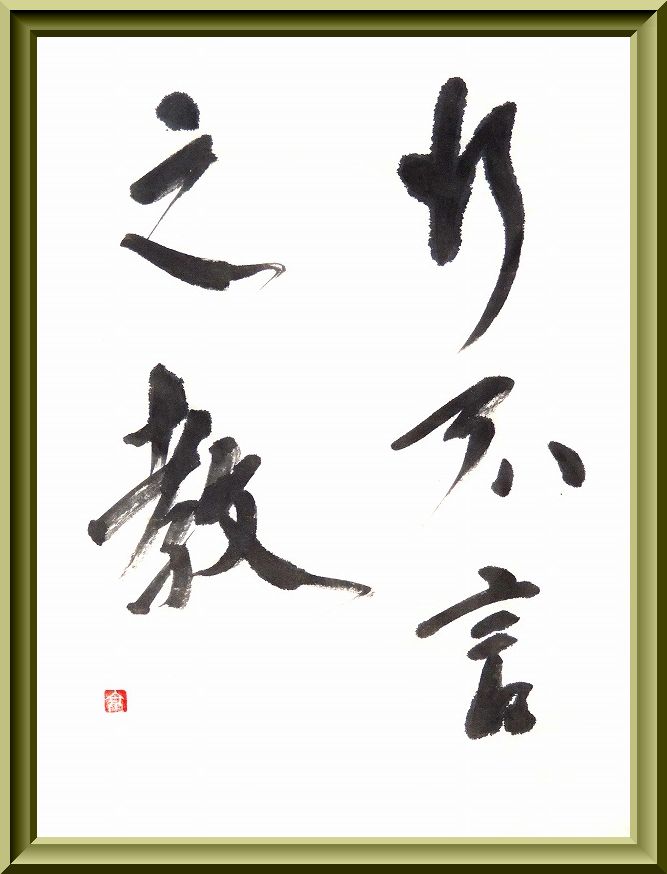 行不言
之教